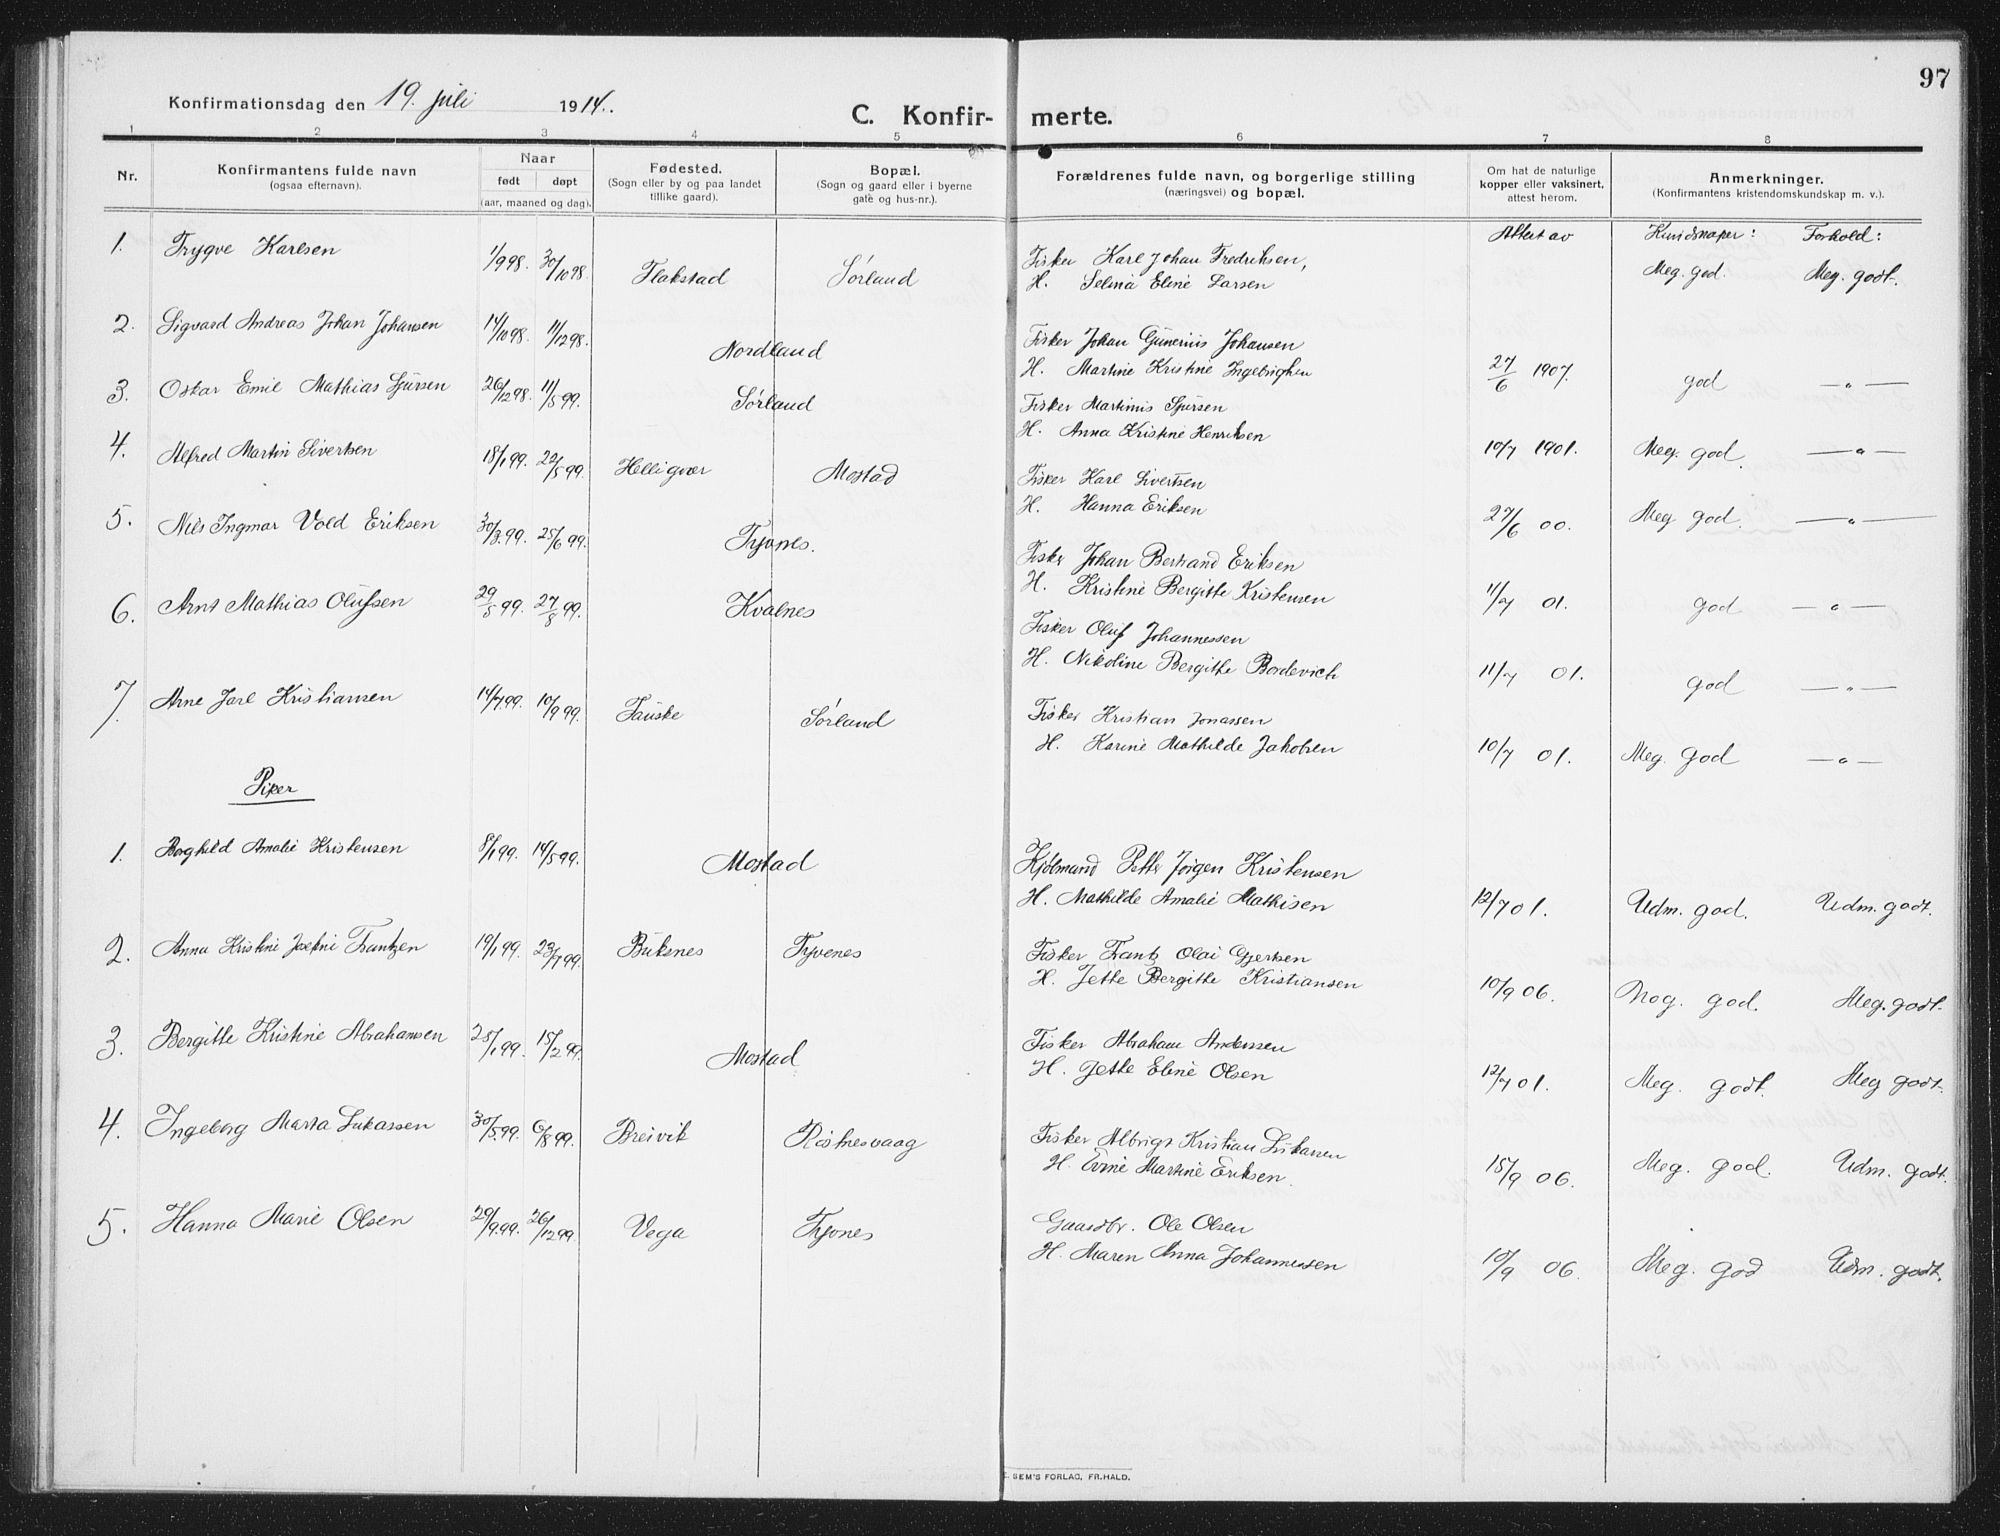 97
Konfirmationsdag den 19. juli 1914.
C. Konfir- merte.
1 2 3 4 5 6 7 8
Nr. Konfirmantens fulde navn (ogsaa efternavn). Naar født døpt (aar, maaned og dag). Fødested. (Sogn eller by og paa landet tillike gaard). Bopæl. (Sogn og gaard eller i byerne gate og hus-nr.). Forældrenes fulde navn, og borgerlige stilling (næringsvei) og bopæl. Om hat de naturlige kopper eller vaksinert, attest herom. Anmerkninger. (Konfirmantens kristendomskundskap m. v.).
Attest av Kundskaper: Forhold:
1. Trygve Karlsen 1/9 98. 30/10 98. Flakstad Sørland Fisker Karl Johan Fredriksen, Meg. god. Meg. godt.
H. Selina Eline Larsen
2. Sigvard Andreas Johan Johansen 14/10 98. 11/12 98. Nordland Fisker Johan Gunerius Johansen
H. Martine Kristine Ingebrigtsen 27/6 1907. god — " —
3. Oskar Emil Mathias Sjursen 26/12 98. 11/5 99. Sørland Fisker Martinus Sjursen
H. Anna Kristine Henriksen 10/7 1901. Meg. god. — " —
4. Alfred Martin Sivertsen 18/1 99. 22/5 99. Helligvær Mostad Fisker Karl Sivertsen
H. Hanna Eriksen 27/6 00. Meg god. — " —
5. Nils Ingmar Vold Eriksen 30/3 99. 25/6 99. Tyvnes. Fisker Johan Bertrand Eriksen
H. Kristine Bergitte Kristensen 11/7 01. god — " —
6. Arnt Mathias Olufsen 29/5 99. 27/8 99. Kvalnes Fisker Oluf Johannessen
H. Nikoline Bergitte Bordevich 11/7 01. god — " —
7. Arne Jarl Kristiansen 14/7 99. 10/9 99. Fauske Sørland Fisker Kristian Jonassen
H. Karine Mathilde Jakobsen 10/7 01. Meg. god — " —
Piker
1. Borghild Amalie Kristensen 8/1 99. 14/5 99. Mostad Kjøbmand Petter Jørgen Kristensen
H. Mathilde Amalie Mathisen 12/7 01. Udm. god. Udm. godt.
2. Anna Kristine Josefine Frantzen 19/1 99. 23/7 99. Buksnes Tyvenes Fisker Frantz Olai Gjertsen
H. Jette Bergitte Kristiansen 10/9 06. Nog. god. Meg. godt.
3. Bergitte Kristine Abrahamsen 25/1 99. 15/2 99. Mostad Fisker Abraham Anderssen
H. Jette Eline Olsen 12/7 01. Meg. godt. Meg godt.
4. Ingeborg Marta Lukassen 30/5 99. 6/8 99. Breivik Røstnesvaag Fisker Albrigt Kristian Lukassen
H. Evine Martine Eriksen. 15/9 06. Meg. god. Udm. godt.
5. Hanna Marie Olsen 29/9 99. 26/12 99. Vega Tyvnes Gaardbr. Ole Olsen
H. Maren Anna Johannessen 10/9 06. Meg. god Udm. godt.
SEM'S FORLAG, FR.HALD.